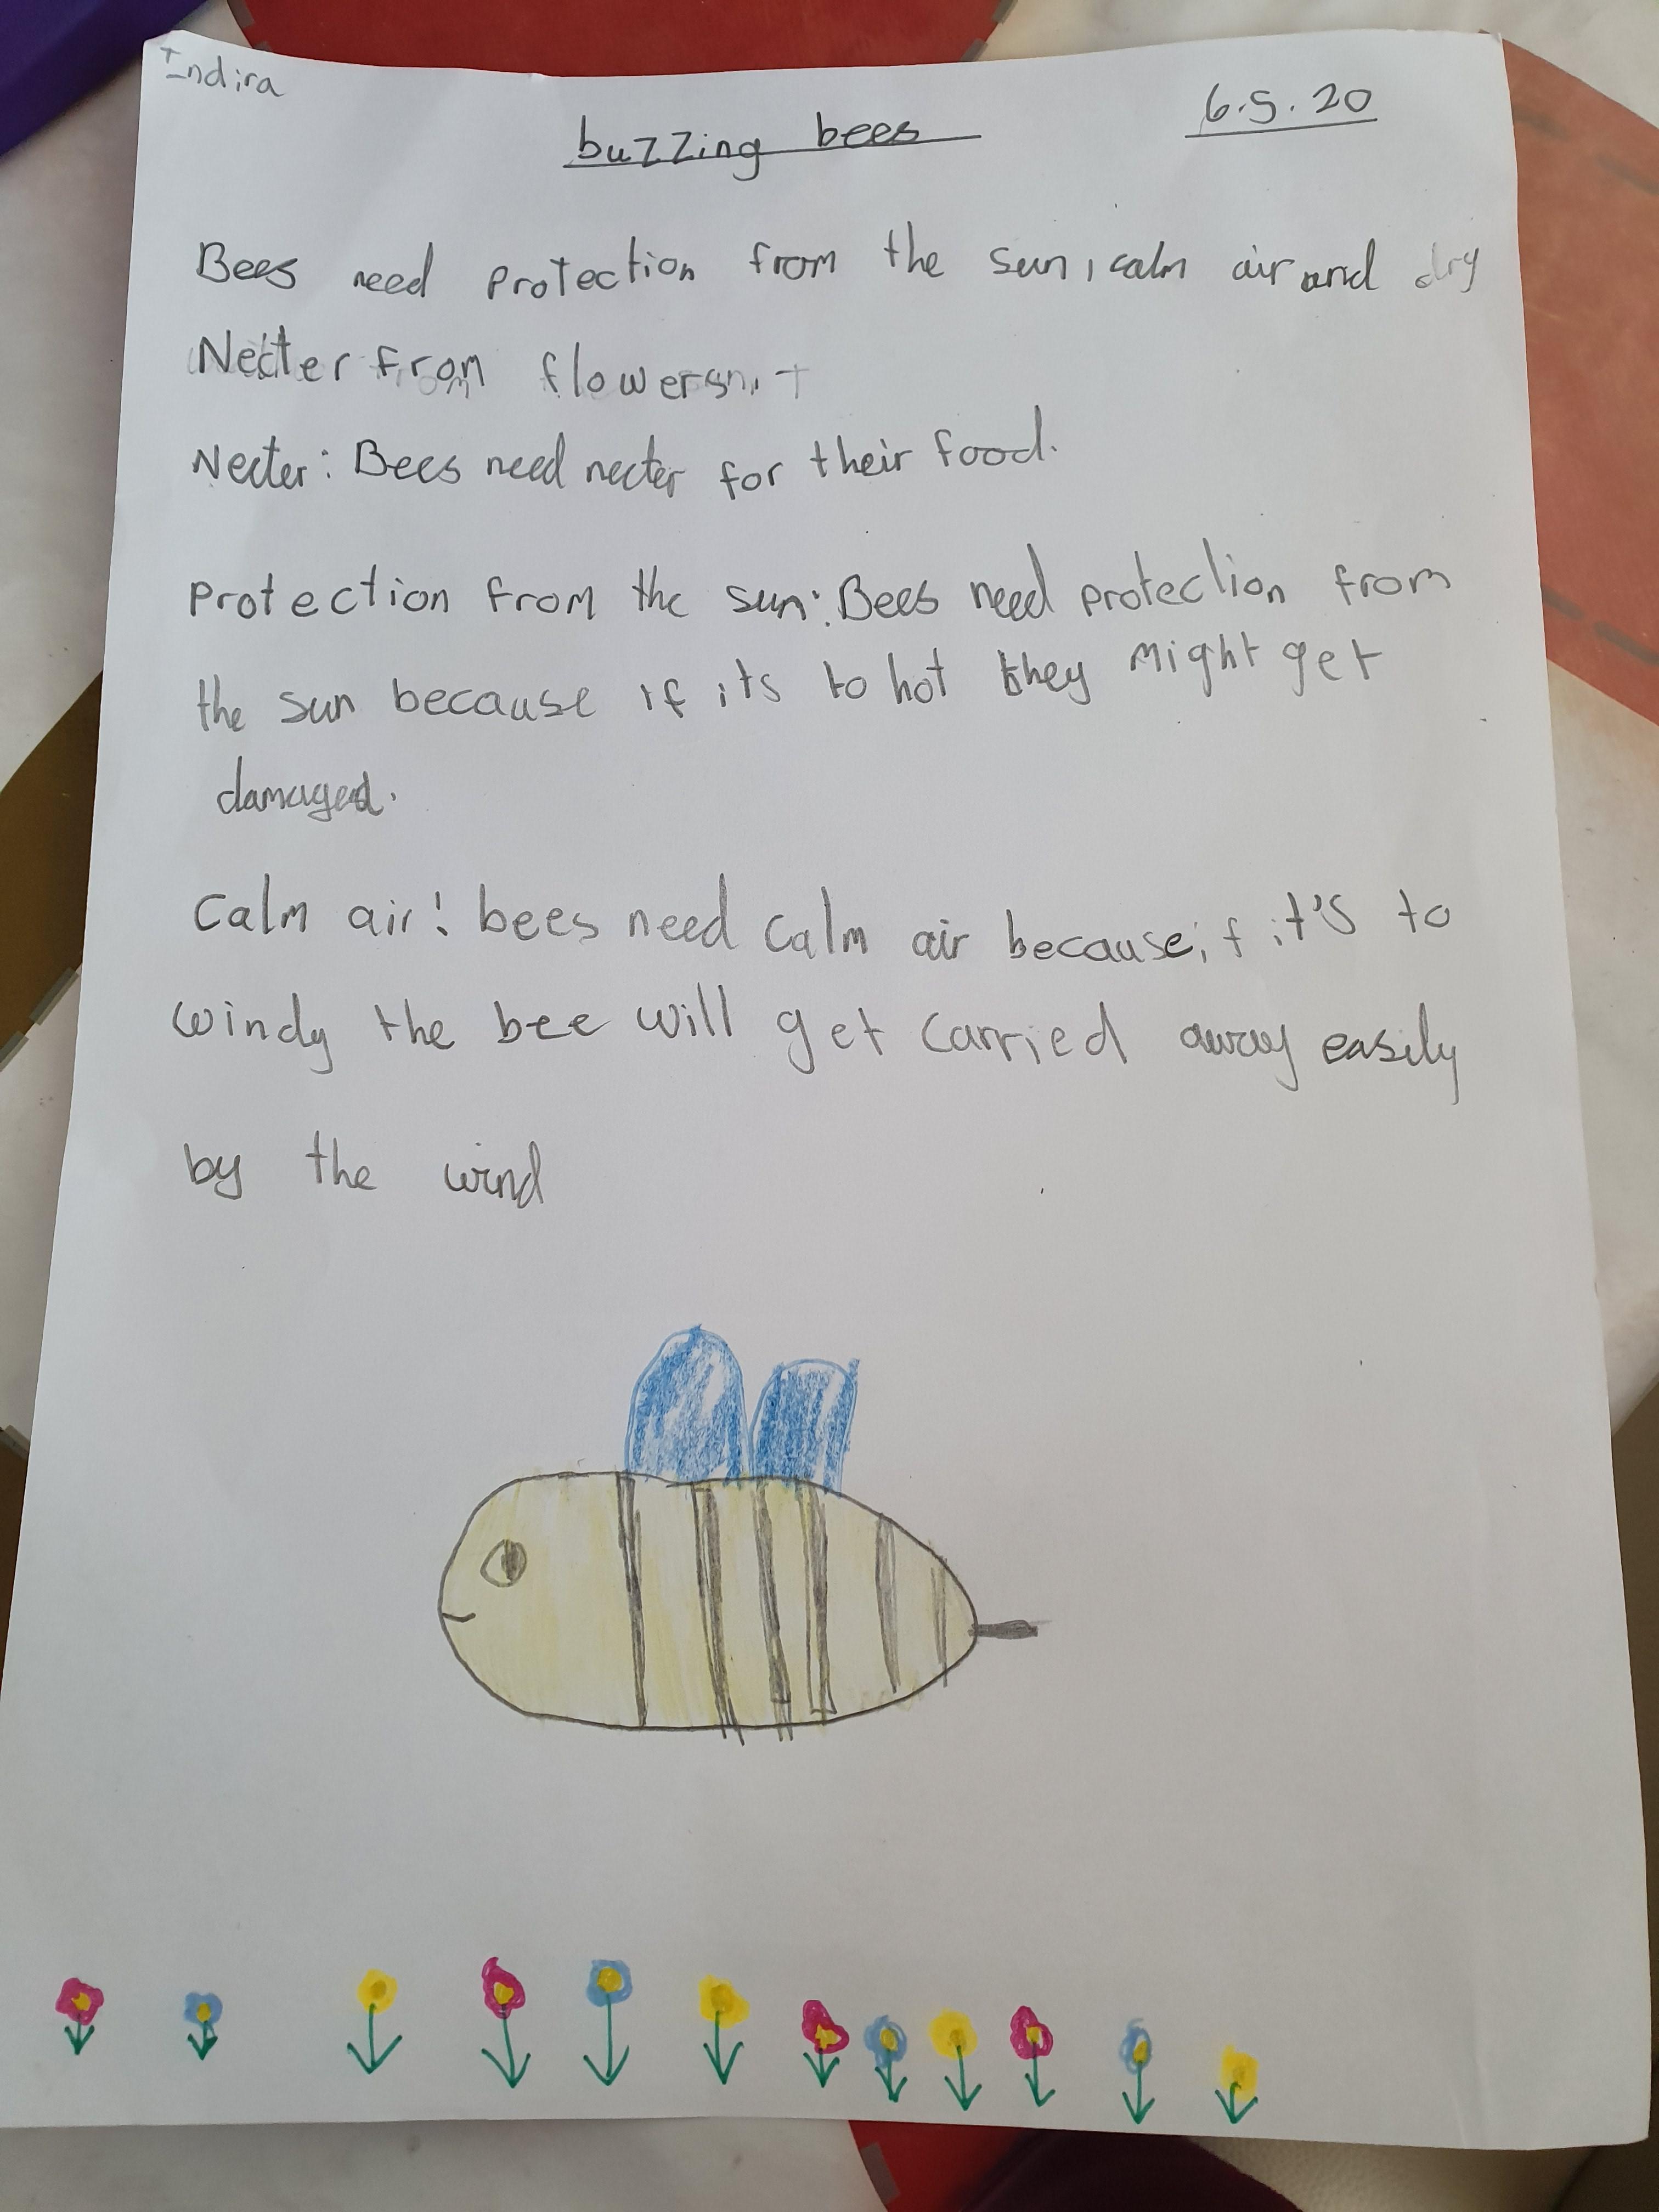 Indira
6.5.20
buzzing bees
Bees need protection from the sun, calm air and dry
Necter from flowers
Necter: Bees need necter for their food.
Protection from the sun: Bees need protection from
the sun because if its to hot they might get
damaged.
Calm air: bees need calm air because if it's to
windy the bee will get carried away easily
by the wind